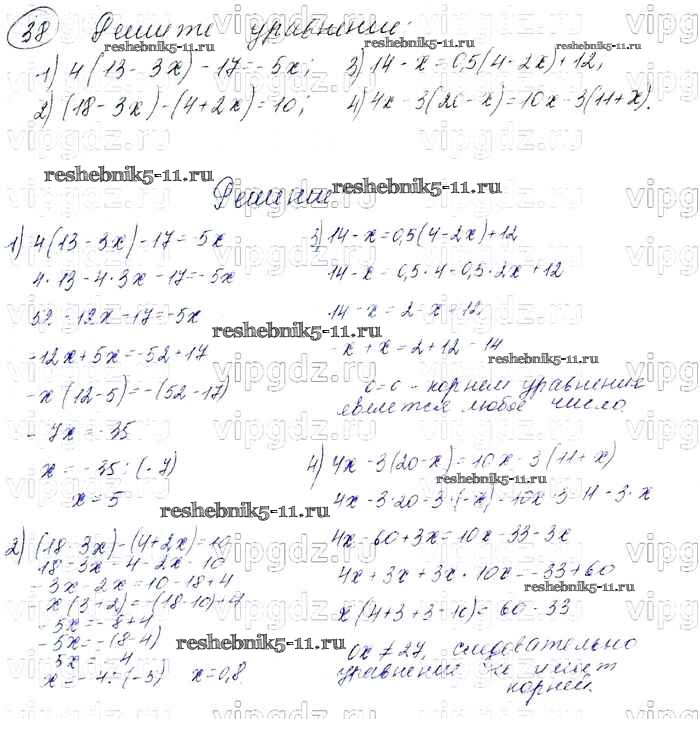 38 Решите уравнение:
1) 4(13 - 3x) - 17 = -5x; 3) 14 - x = 0,5(4 - 2x) + 12;
2) (18 - 3x) - (4 + 2x) = 10; 4) 4x - 3(20 - x) = 10x - 3(11 + x).
reshebnik5-11.ru
Решение
1) 4(13 - 3x) - 17 = -5x
4·13 - 4·3x - 17 = -5x
52 - 12x - 17 = -5x
-12x + 5x = -52 + 17
-x(12 - 5) = -(52 - 17)
-7x = -35
x = -35 : (-7)
x = 5
2) (18 - 3x) - (4 + 2x) = 10
18 - 3x - 4 - 2x = 10
-3x - 2x = 10 - 18 + 4
-x(3 + 2) = -(18 - 10) + 4
-5x = -8 + 4
-5x = -(8 - 4)
-5x = -4
x = -4 : (-5) x = 0,8
3) 14 - x = 0,5(4 - 2x) + 12
14 - x = 0,5·4 - 0,5·2x + 12
14 - x = 2 - x + 12
-x + x = 2 + 12 - 14
0 = 0 - корнем уравнения
является любое число.
4) 4x - 3(20 - x) = 10x - 3(11 + x)
4x - 3·20 - 3·(-x) = 10x - 3·11 - 3·x
4x - 60 + 3x = 10x - 33 - 3x
4x + 3x + 3x - 10x = -33 + 60
x(4 + 3 + 3 - 10) = 60 - 33
0x ≠ 27, следовательно
уравнение не имеет
корней.
reshebnik5-11.ru
vipgdz.ru